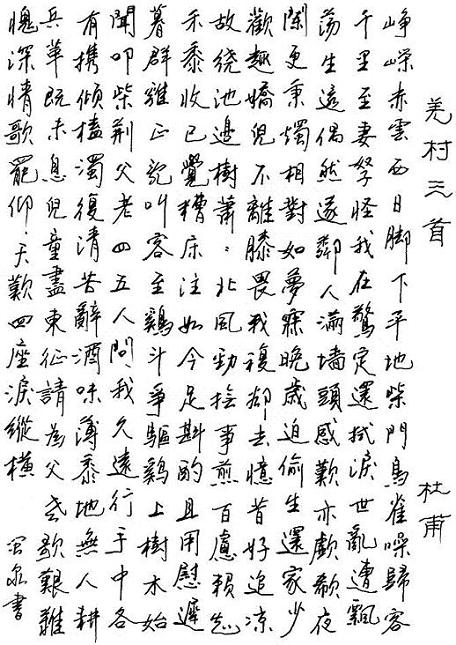 羌村三首 杜甫
峥嵘赤雲西日脚下平地柴門鳥雀噪歸客
千里至妻孥怪我在驚定還拭淚世亂遭飄
荡生還偶然遂鄰人滿墙頭感歎亦歔欷夜
闌更秉燭相對如夢寐晚歲迫偷生還家少
歡趣嬌兒不離膝畏我復却去憶昔好追凉
故繞池邊樹蕭〻北風勁撫事煎百慮賴知
禾黍收已覺糟床注如今足斟酌且用慰遲
暮群雞正亂叫客至鷄斗爭驅鷄上樹木始
聞叩柴荆父老四五人問我久遠行手中各
有携傾榼濁復清苦辭酒味薄黍地無人耕
兵革既未息兒童盡東征請為父老歌艱難
愧深情歌罷仰天歎四座淚縱横 泉書